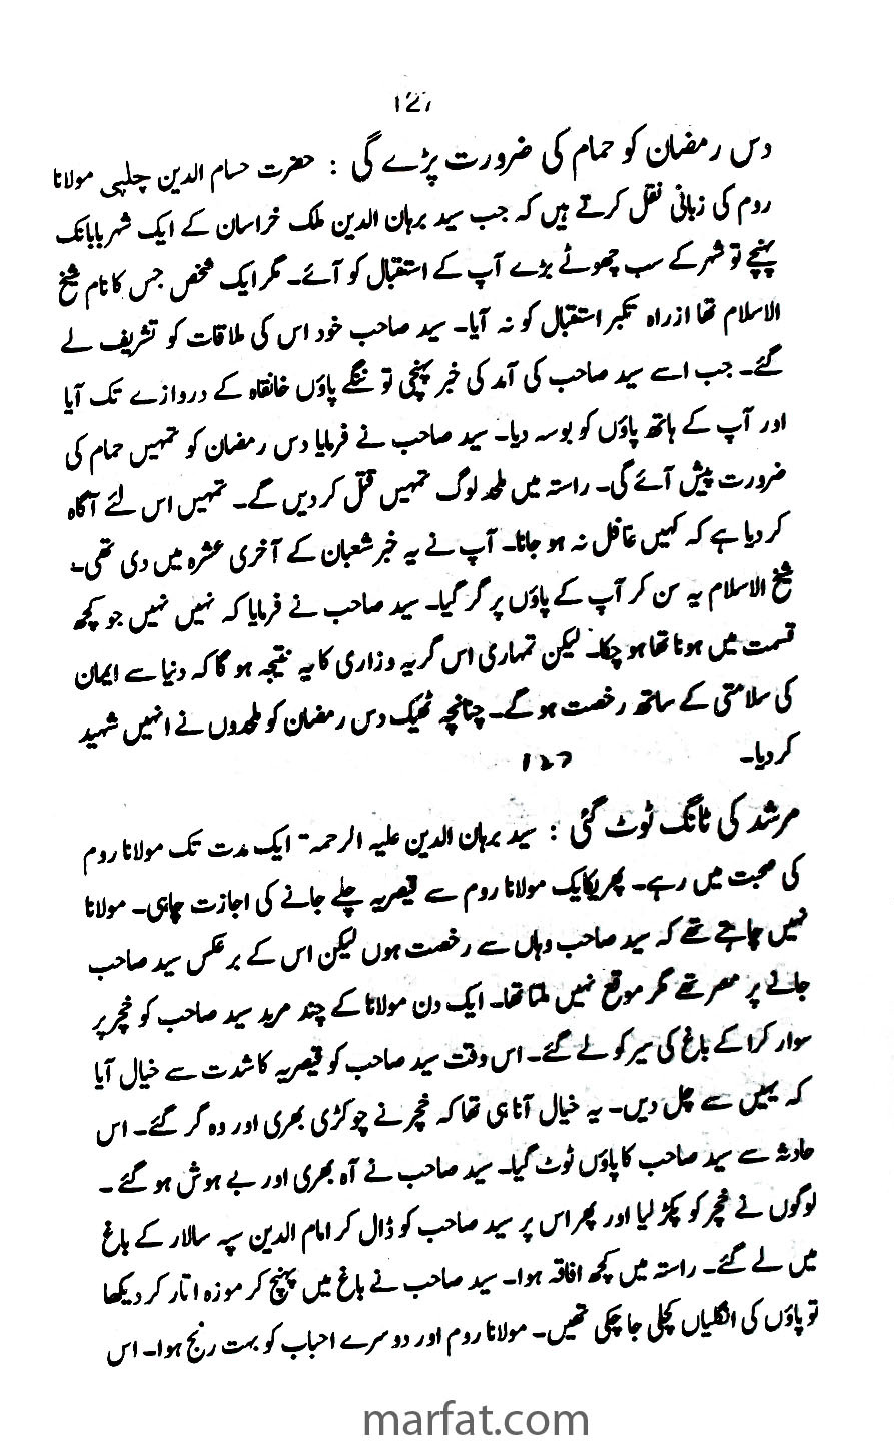 127
دس رمضان کو حمام کی ضرورت پڑے گی : حضرت حسام الدین چلپی مولانا
روم کی زبانی نقل کرتے ہیں کہ جب سید برہان الدین ملک خراسان کے ایک شہر بابانک
پہنچے تو شہر کے سب چھوٹے بڑے آپ کے استقبال کو آئے۔ مگر ایک شخص جس کا نام شیخ
الاسلام تھا ازراہ تکبر استقبال کو نہ آیا۔ سید صاحب خود اس کی ملاقات کو تشریف لے
گئے۔ جب اسے سید صاحب کی آمد کی خبر پہنچی تو ننگے پاؤں خانقاہ کے دروازے تک آیا
اور آپ کے ہاتھ پاؤں کو بوسہ دیا۔ سید صاحب نے فرمایا دس رمضان کو تمہیں حمام کی
ضرورت پیش آئے گی۔ راستہ میں ملحد لوگ تمہیں قتل کر دیں گے۔ تمہیں اس لئے آگاہ
کر دیا ہے کہ کہیں غافل نہ ہو جانا۔ آپ نے یہ خبر شعبان کے آخری عشرہ میں دی تھی۔
شیخ الاسلام یہ سن کر آپ کے پاؤں پر گر گیا۔ سید صاحب نے فرمایا کہ نہیں نہیں جو کچھ
قسمت میں ہونا تھا ہو چکا۔ لیکن تمہاری اس گریہ و زاری کا یہ نتیجہ ہو گا کہ دنیا سے ایمان
کی سلامتی کے ساتھ رخصت ہو گے۔ چنانچہ ٹھیک دس رمضان کو ملحدوں نے انہیں شہید
کر دیا۔
مرشد کی ٹانگ ٹوٹ گئی : سید برہان الدین علیہ الرحمہ ایک مدت تک مولانا روم
کی صحبت میں رہے۔ پھر یکایک مولانا روم سے قیصریہ چلے جانے کی اجازت چاہی۔ مولانا
نہیں چاہتے تھے کہ سید صاحب وہاں سے رخصت ہوں لیکن اس کے برعکس سید صاحب
جانے پر مصر تھے مگر موقع نہیں ملتا تھا۔ ایک دن مولانا کے چند مرید سید صاحب کو خچر پر
سوار کرا کے باغ کی سیر کو لے گئے۔ اس وقت سید صاحب کو قیصریہ کا شدت سے خیال آیا
کہ یہیں سے چل دیں۔ یہ خیال آنا ہی تھا کہ خچر نے چوکڑی بھری اور وہ گر گئے۔ اس
حادثہ سے سید صاحب کا پاؤں ٹوٹ گیا۔ سید صاحب نے آہ بھری اور بے ہوش ہو گئے۔
لوگوں نے خچر کو پکڑ لیا اور پھر اس پر سید صاحب کو ڈال کر امام الدین سپہ سالار کے باغ
میں لے گئے۔ راستہ میں کچھ افاقہ ہوا۔ سید صاحب نے باغ میں پہنچ کر موزہ اتار کر دیکھا
تو پاؤں کی انگلیاں کچلی جا چکی تھیں۔ مولانا روم اور دوسرے احباب کو بہت رنج ہوا۔ اس
marfat.com